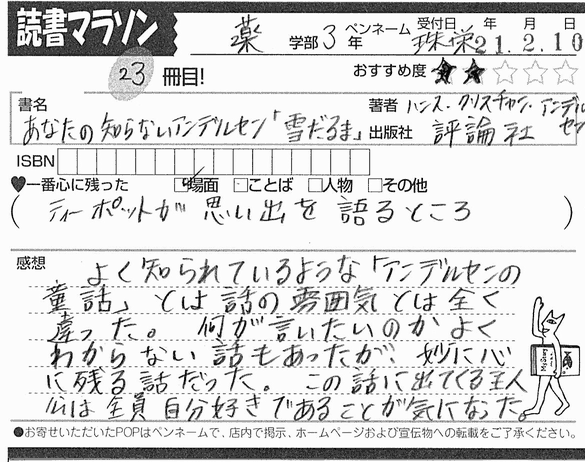 読書マラソン
薬 学部 3 年
ペンネーム 珠栄
受付日 年 月 日
21.2.10
23 冊目!
おすすめ度 ★★☆☆☆
書名 あなたの知らないアンデルセン「雪だるま」
著者 ハンス・クリスチャン・アンデルセン
出版社 評論社
ISBN
♥一番心に残った ☑場面 □ことば □人物 □その他
(ティーポットが思い出を語るところ)
感想
よく知られているような「アンデルセンの
童話」とは話の雰囲気とは全く
違った。何が言いたいのかよく
わからない話もあったが、妙に心
に残る話だった。この話に出てくる主人
公は全員自分好きであることが気になった。
●お寄せいただいたPOPはペンネームで、店内で掲示、ホームページおよび宣伝物への転載をご了承ください。